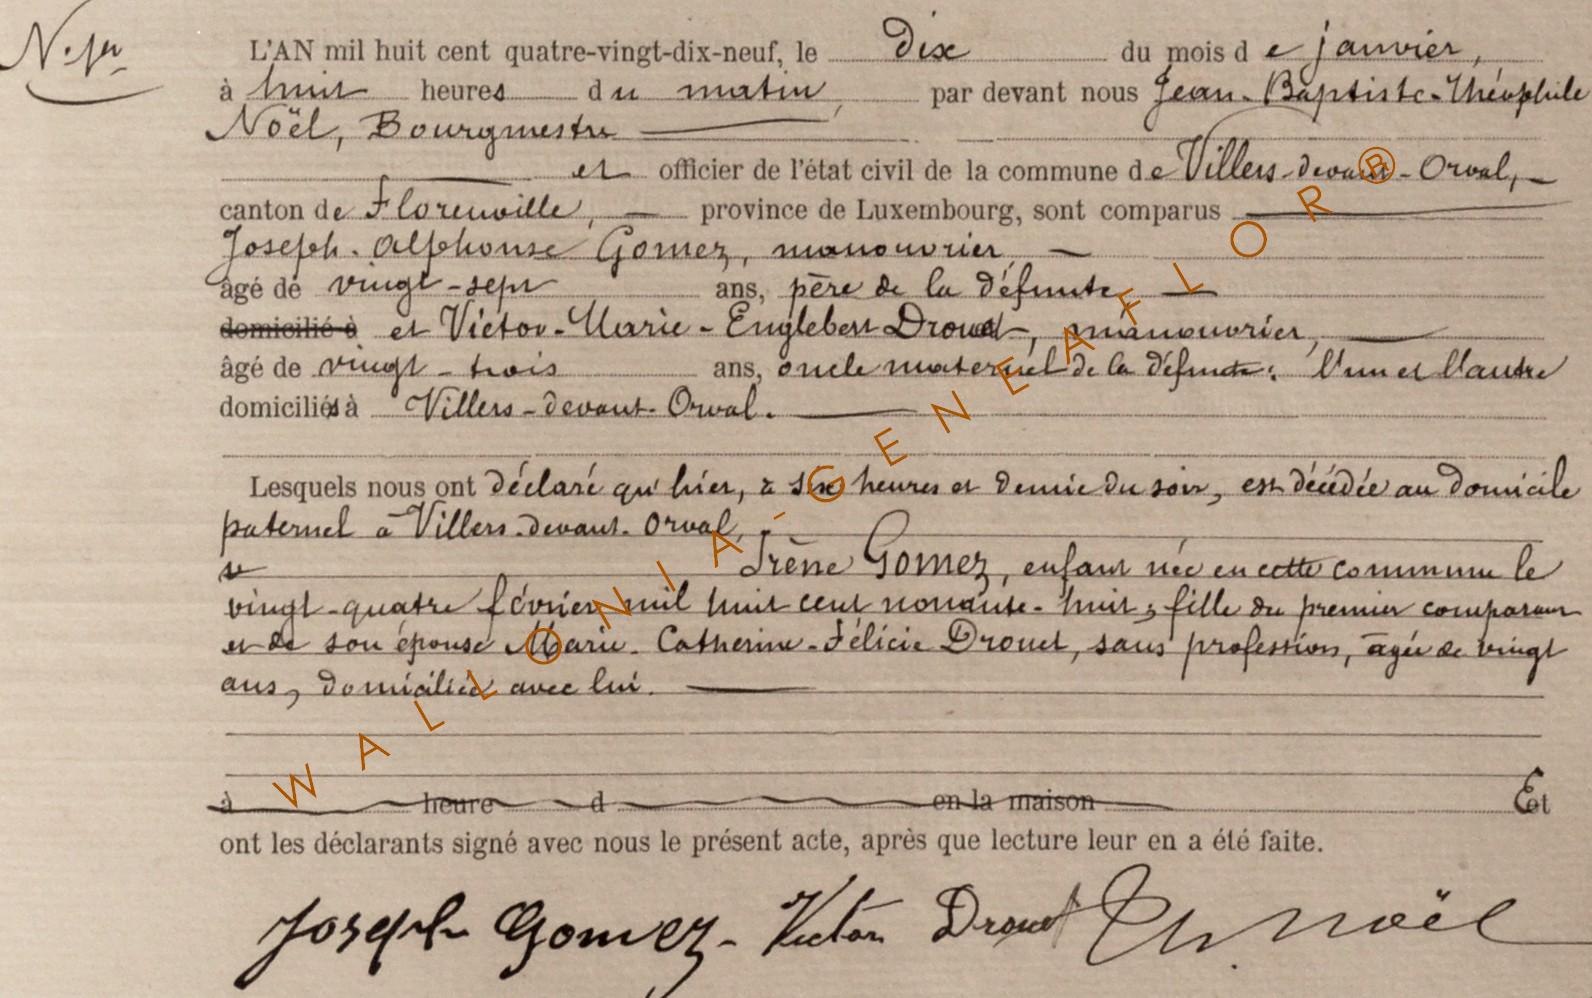 N. 1er
L'AN mil huit cent quatre-vingt-dix-neuf, le dix du mois de janvier,
à huit heures du matin, par devant nous Jean-Baptiste-Théophile
Noël, Bourgmestre
et officier de l'état civil de la commune de Villers-devant-Orval,
canton de Florenville, province de Luxembourg, sont comparus
Joseph-Alphonse Gomez, manouvrier
âgé de vingt-sept ans, père de la défunte
domicilié à et Victor-Marie-Englebert Drouet, manouvrier,
âgé de vingt-trois ans, oncle maternel de la défunte; l'un et l'autre
domiciliés à Villers-devant-Orval.
Lesquels nous ont déclaré qu'hier, à six heures et demie du soir, est décédée au domicile
paternel à Villers-devant-Orval,
Irène Gomez, enfant née en cette commune le
vingt-quatre février mil huit cent nonante-huit, fille du premier comparant
et de son épouse Marie-Catherine-Félicie Drouet, sans profession, âgée de vingt
ans, domiciliée avec lui.
à heure d en la maison Et
ont les déclarants signé avec nous le présent acte, après que lecture leur en a été faite.
Joseph Gomez Victor Drouet Th. Noël
WALLONIA-GENEAFLOR®